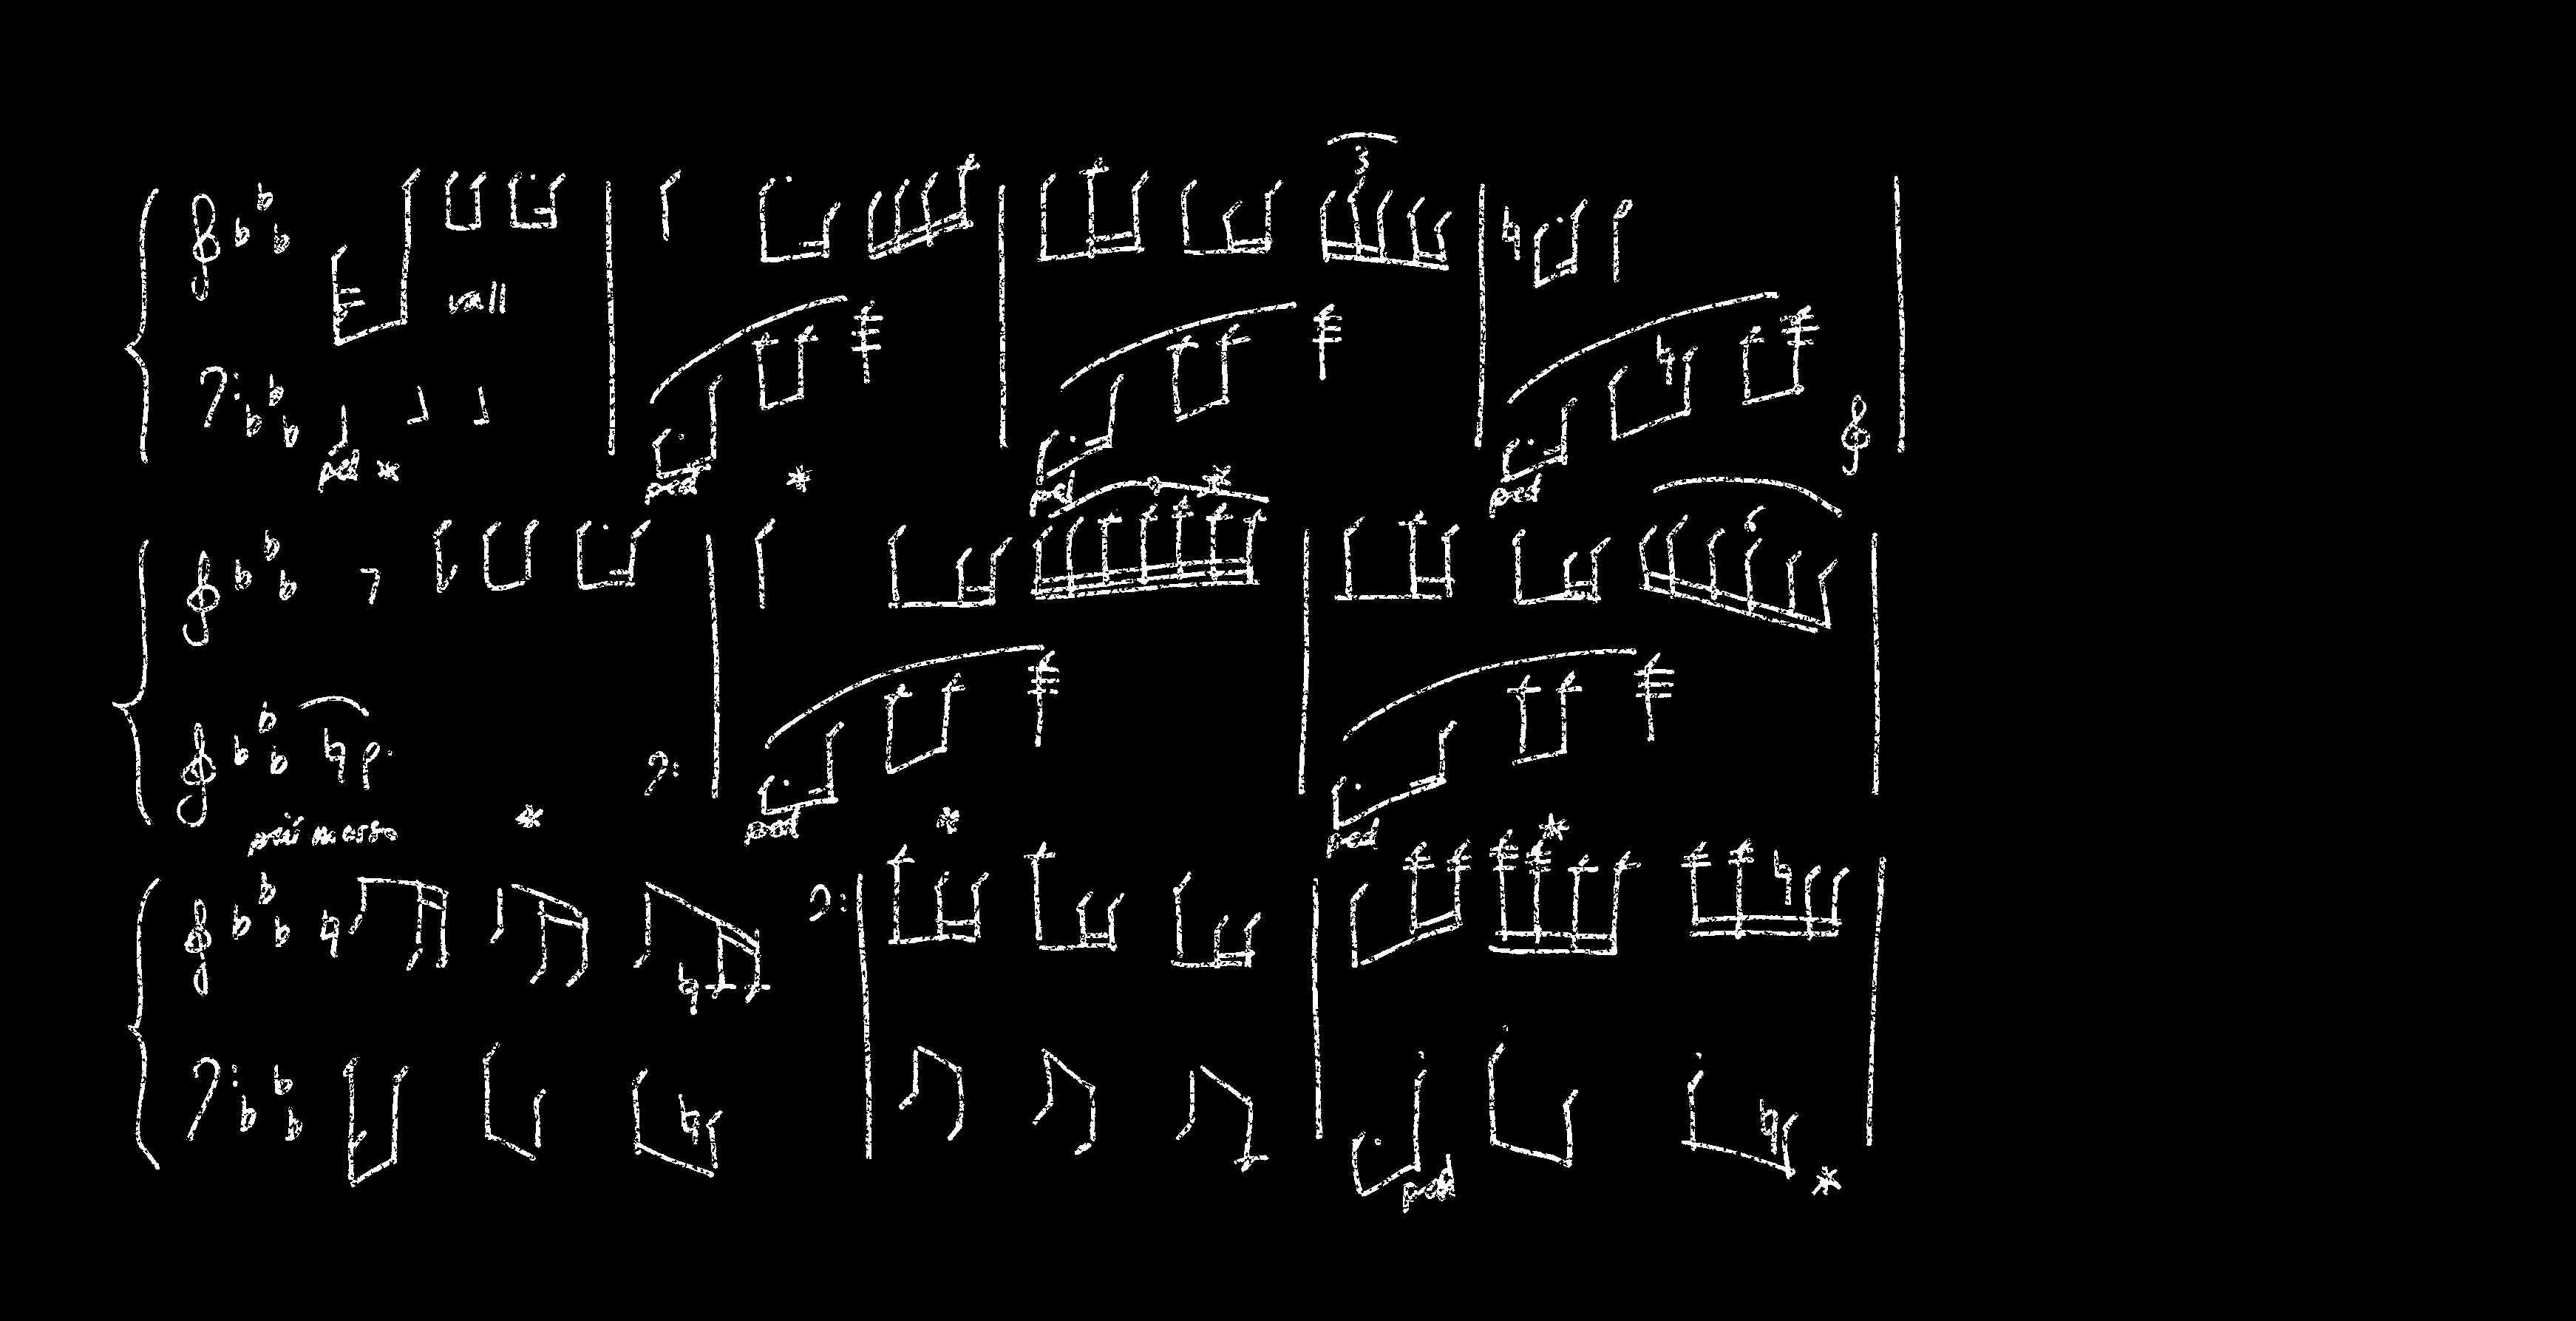 3
rall
ped *
ped *
ped *
ped
9
6
più mosso *
ped *
ped *
ped *